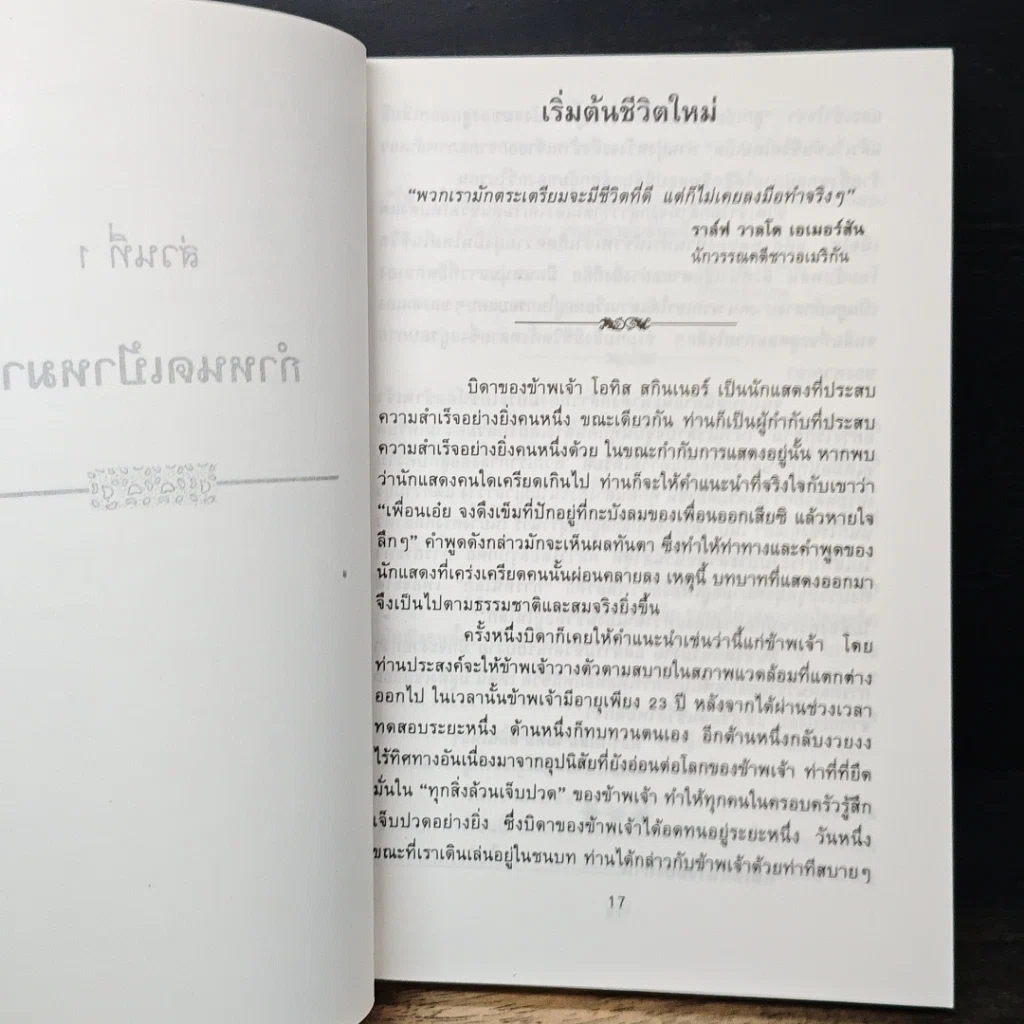 ส่วนที่ 1
กำหนดเป้าหมา
เริ่มต้นชีวิตใหม่
“พวกเรามักตระเตรียมจะมีชีวิตที่ดี แต่ก็ไม่เคยลงมือทำจริงๆ”
ราล์ฟ วาลโด เอเมอร์สัน
นักวรรณคดีชาวอเมริกัน
บิดาของข้าพเจ้า โอทิส สกินเนอร์ เป็นนักแสดงที่ประสบ
ความสำเร็จอย่างยิ่งคนหนึ่ง ขณะเดียวกัน ท่านก็เป็นผู้กำกับที่ประสบ
ความสำเร็จอย่างยิ่งคนหนึ่งด้วย ในขณะกำกับการแสดงอยู่นั้น หากพบ
ว่านักแสดงคนใดเครียดเกินไป ท่านก็จะให้คำแนะนำที่จริงใจกับเขาว่า
“เพื่อนเอ๋ย จงดึงเข็มที่ปักอยู่ที่กะบังลมของเพื่อนออกเสียซิ แล้วหายใจ
ลึกๆ” คำพูดดังกล่าวมักจะเห็นผลทันตา ซึ่งทำให้ท่าทางและคำพูดของ
นักแสดงที่เคร่งเครียดคนนั้นผ่อนคลายลง เหตุนี้ บทบาทที่แสดงออกมา
จึงเป็นไปตามธรรมชาติและสมจริงยิ่งขึ้น
ครั้งหนึ่งบิดาก็เคยให้คำแนะนำเช่นว่านี้แก่ข้าพเจ้า โดย
ท่านประสงค์จะให้ข้าพเจ้าวางตัวตามสบายในสภาพแวดล้อมที่แตกต่าง
ออกไป ในเวลานั้นข้าพเจ้ามีอายุเพียง 23 ปี หลังจากได้ผ่านช่วงเวลา
ทดสอบระยะหนึ่ง ด้านหนึ่งก็ทบทวนตนเอง อีกด้านหนึ่งกลับงวยงง
ไร้ทิศทางอันเนื่องมาจากอุปนิสัยที่ยังอ่อนต่อโลกของข้าพเจ้า ท่าที่ที่ยึด
มั่นใน “ทุกสิ่งล้วนเจ็บปวด” ของข้าพเจ้า ทำให้ทุกคนในครอบครัวรู้สึก
เจ็บปวดอย่างยิ่ง ซึ่งบิดาของข้าพเจ้าได้อดทนอยู่ระยะหนึ่ง วันหนึ่ง
ขณะที่เราเดินเล่นอยู่ในชนบท ท่านได้กล่าวกับข้าพเจ้าด้วยท่าทีสบายๆ
17